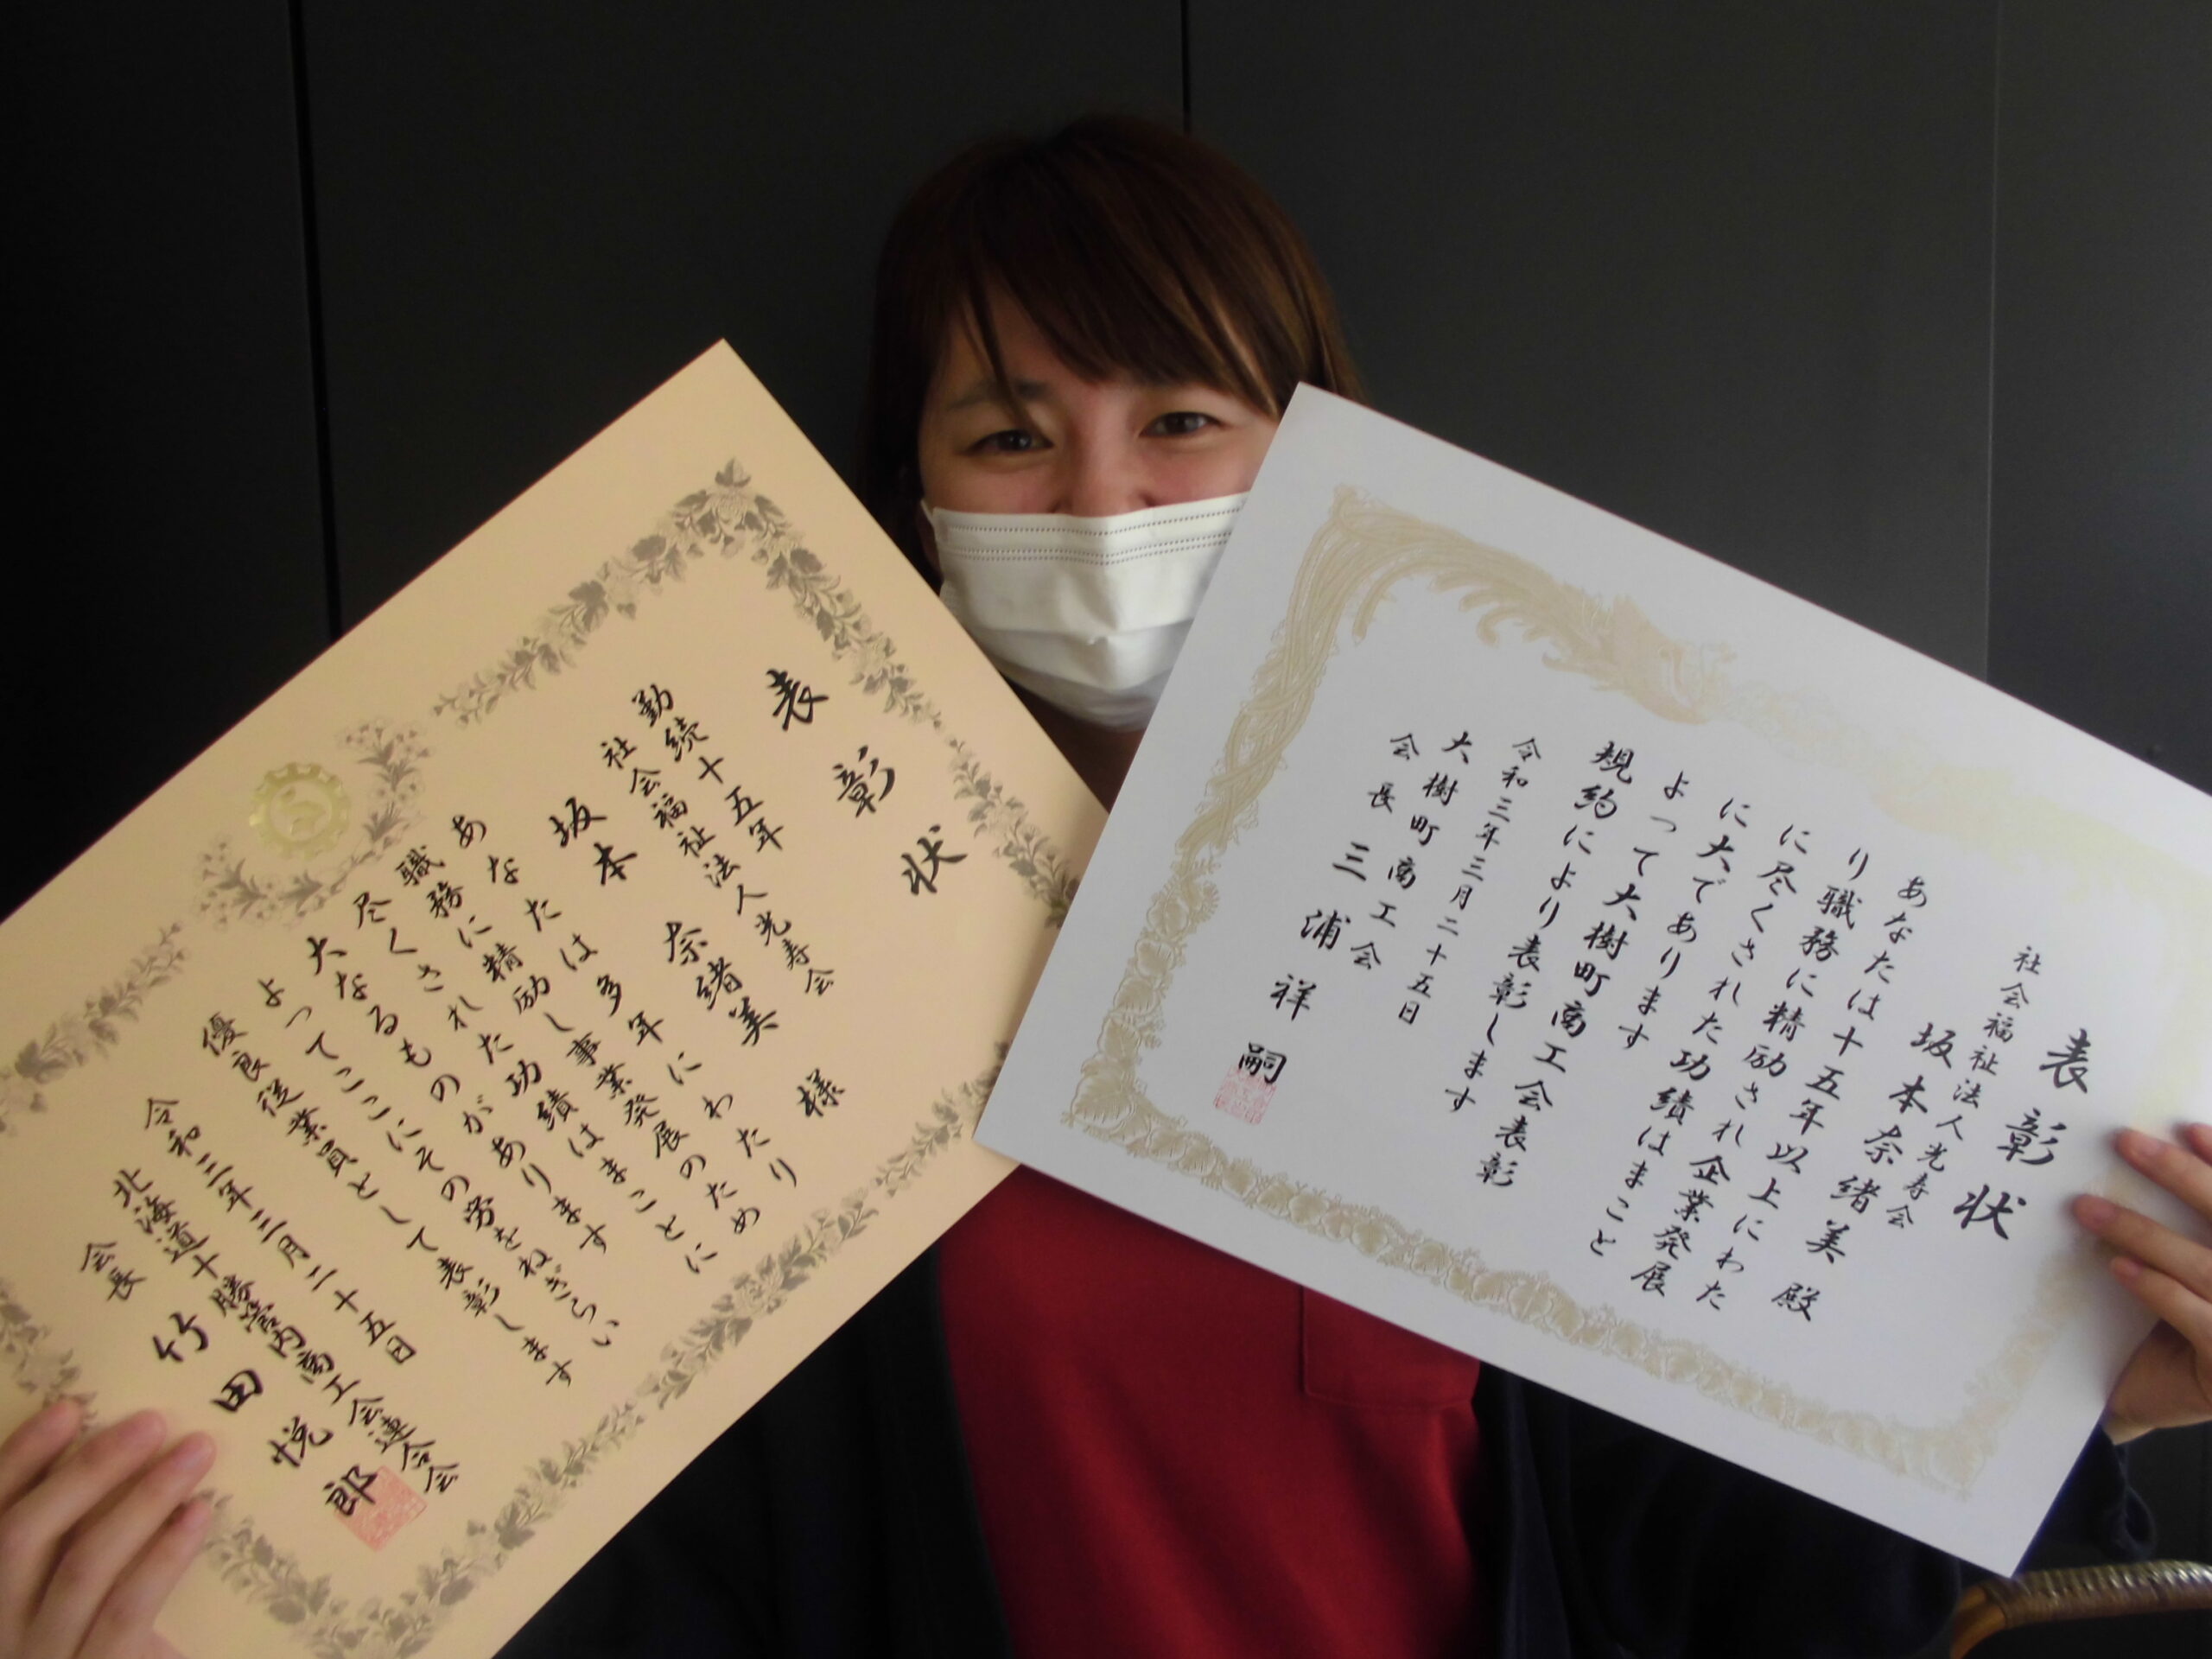 表彰状
勤続十五年
社会福祉法人光寿会
坂本 奈緒美 様
あなたは多年にわたり
職務に精励し事業発展のため
尽くされた功績はまことに
大なるものがあります
よってここにその労をねぎらい
優良従業員として表彰します
令和三年三月二十五日
北海道十勝管内商工会連合会
会長 竹田悦郎
表彰状
社会福祉法人光寿会
坂本奈緒美 殿
あなたは十五年以上にわた
り職務に精励され企業発展
に尽くされた功績はまこと
に大であります
よって大樹町商工会表彰
規約により表彰します
令和三年三月二十五日
大樹町商工会
会長 三浦祥嗣